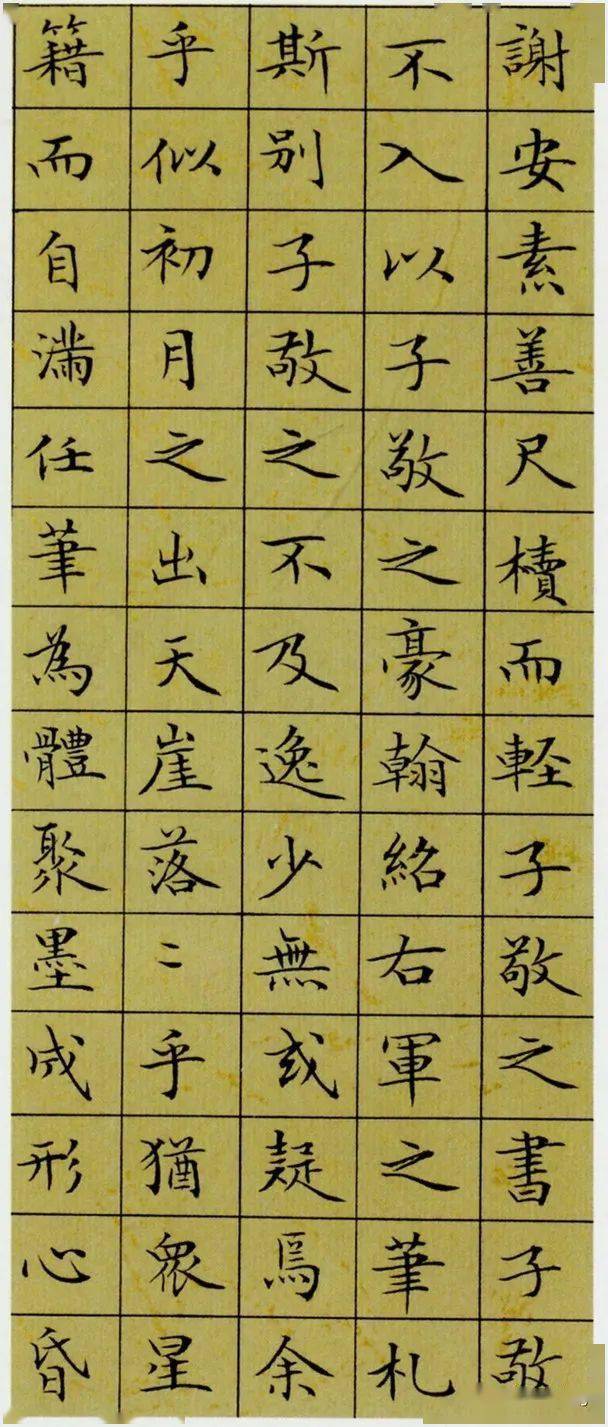 謝安素善尺櫝而軽子敬之書子敬
不入以子敬之豪翰紹右軍之筆札
斯別子敬之不及逸少無或疑焉余
乎似初月之出天崖落〻乎猶眾星
籍而自滿任筆為體聚墨成形心昏